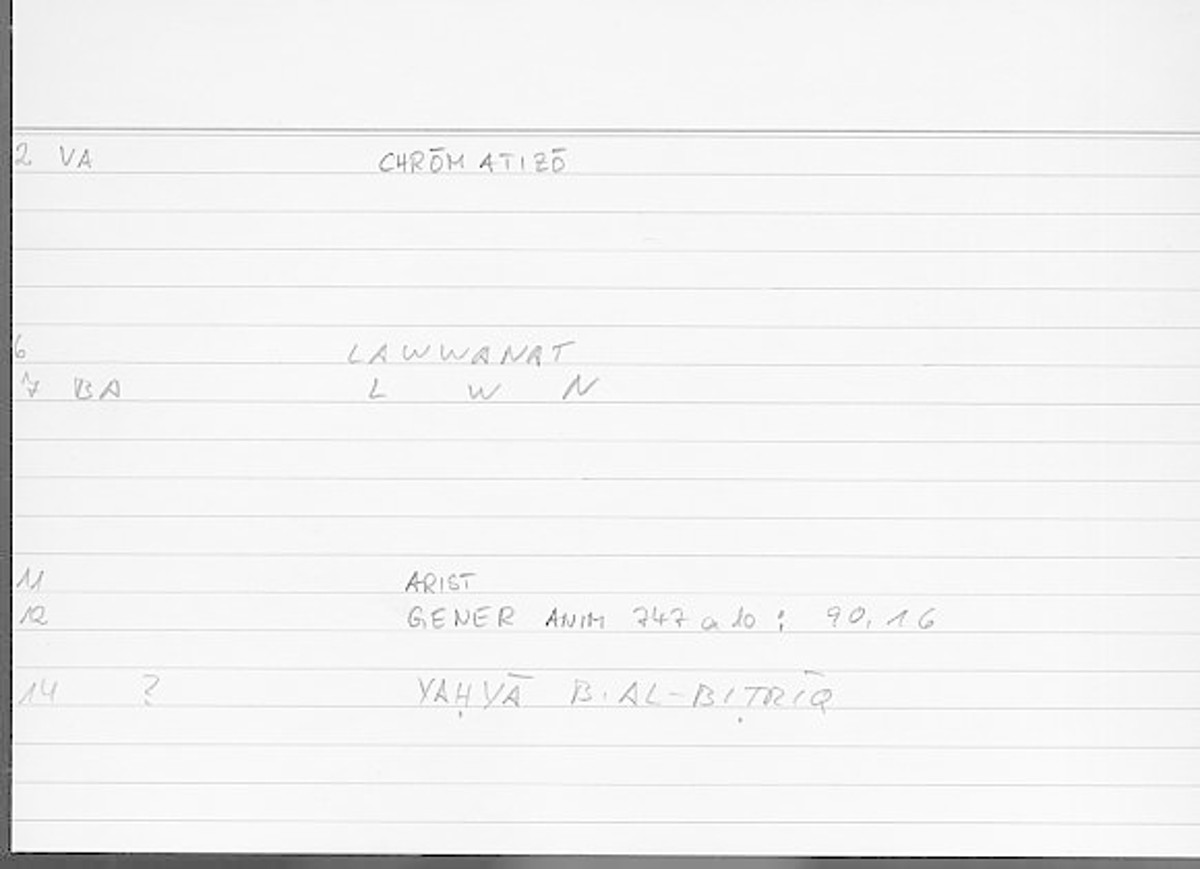 2 VA CHRŌMATIZŌ
6 LAWWANAT
7 BA L W N
11 ARIST
12 GENER ANIM 747 a 10 : 90, 16
14 ? YAḤYĀ B. AL-BIṬRĪQ